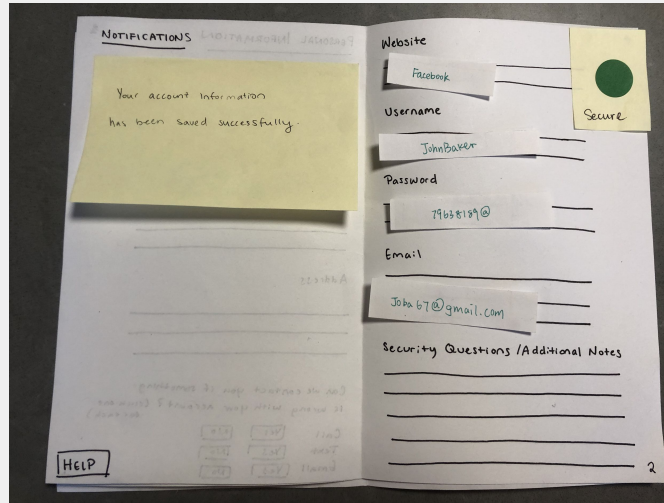 NOTIFICATIONS
Your account information
has been saved successfully.
HELP
Website
Facebook
Username
JohnBaker
Password
79638189@
Email
Joba67@gmail.com
Security Questions / Additional Notes
Secure
2